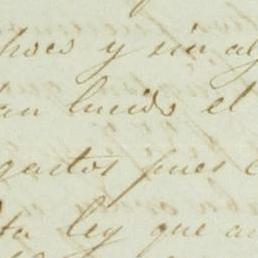 hoes y sin al
han lucido el
gastos pues
ta ley que a